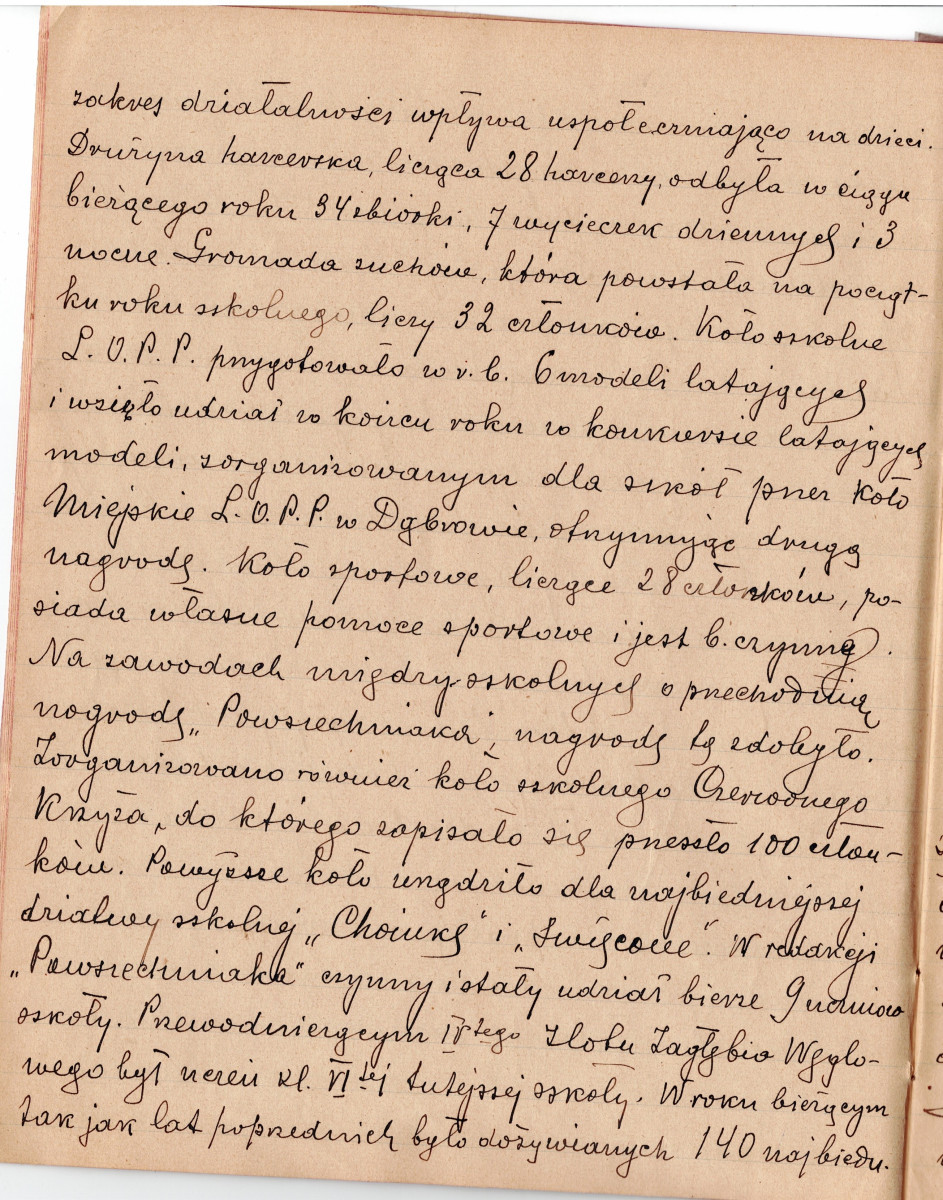 zakres działalności wpływa uspołeczniająco na dzieci.
Drużyna harcerska, licząca 28 harcerzy, odbyła w ciągu
bieżącego roku 34 zbiórki, 7 wycieczek dziennych i 3
nocne. Gromada zuchów, która powstała na począt-
ku roku szkolnego, liczy 32 członków. Koło szkolne
L. O. P. P. przygotowało w r. b. 6 modeli latających
i wzięło udział w końcu roku w konkursie latających
modeli, zorganizowanym dla szkół przez Koło
Miejskie L. O. P. P. w Dąbrowie, otrzymując drugą
nagrodę. Koło sportowe, liczące 28 członków, po-
siada własne pomoce sportowe i jest b. czynne.
Na zawodach między-szkolnych o przechodnią
nagrodę „Powszechniaka", nagrodę tą zdobyło.
Zorganizowano również koło szkolnego Czerwonego
Krzyża, do którego zapisało się przeszło 100 człon-
ków. Powyższe koło urządziło dla najbiedniejszej
dziatwy szkolnej „Choinkę" i „Święcone". W redakcji
„Powszechniaka" czynny i stały udział bierze 9 uczniów
szkoły. Przewodniczącym IV-tego Zlotu Zagłębia Węglo-
wego był uczeń kl. VI-tej tutejszej szkoły. W roku bieżącym
tak jak lat poprzednich było dożywianych 140 najbiedn.